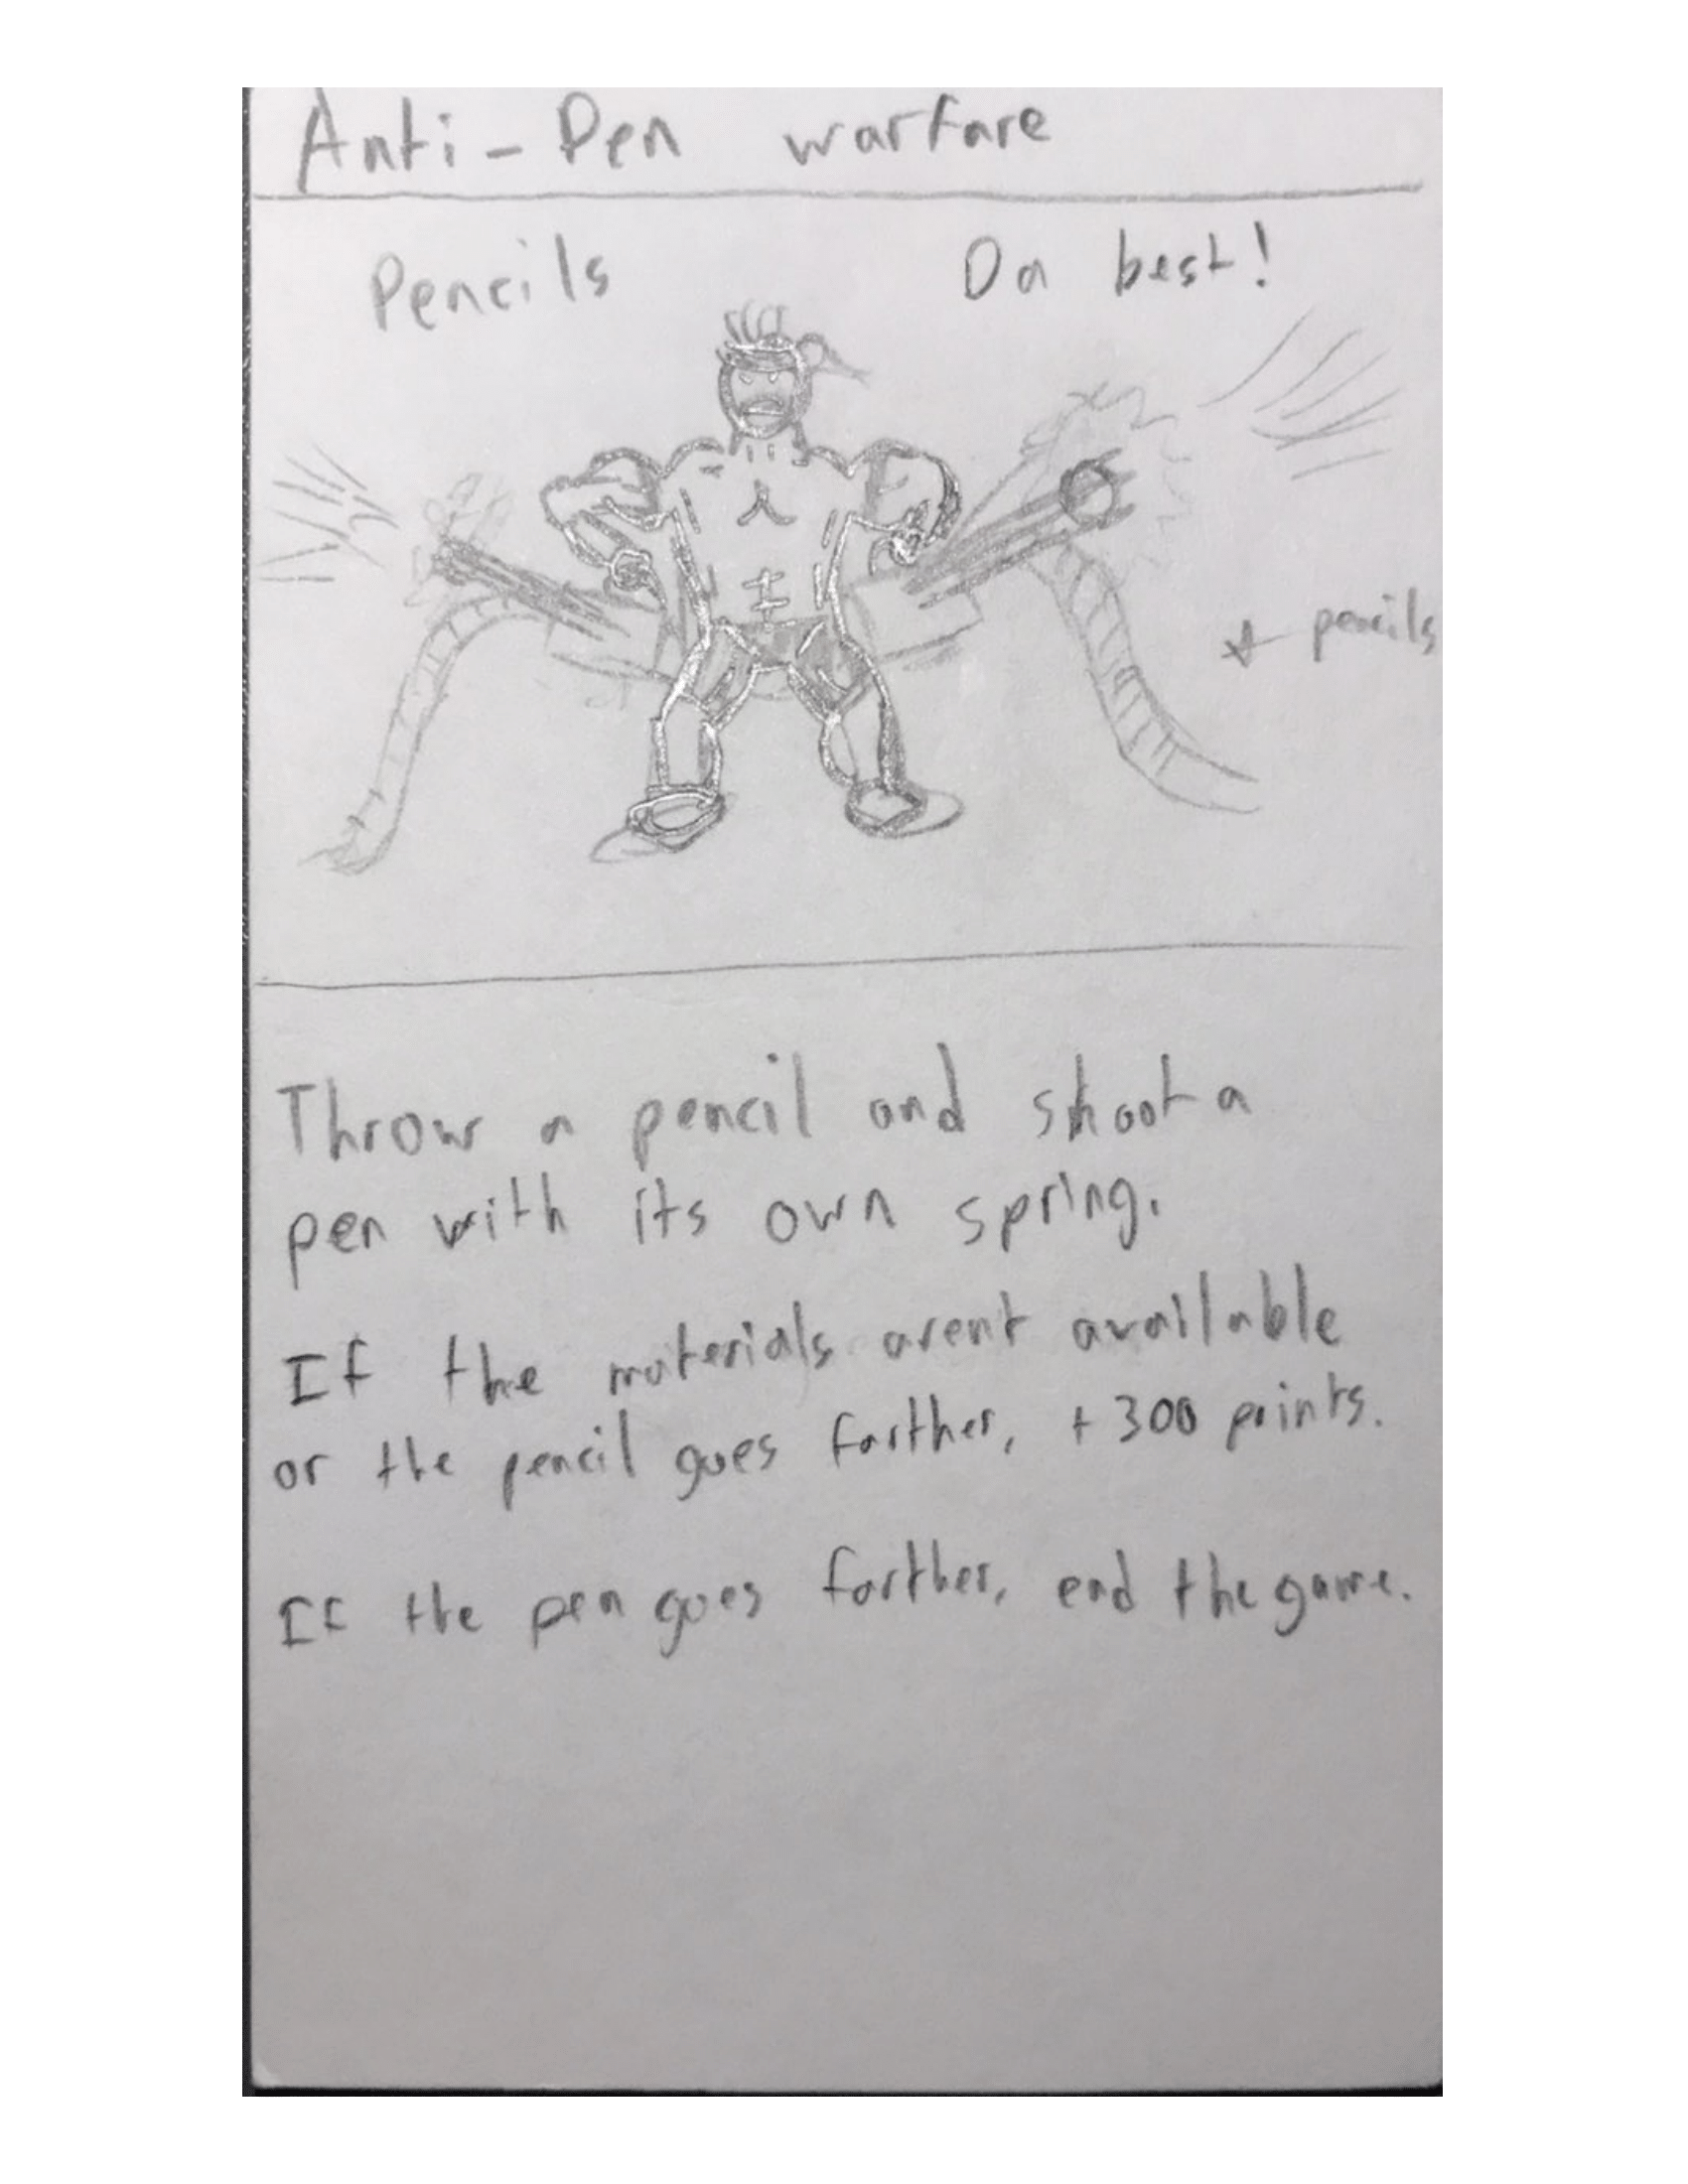 Anti-Pen warfare
Pencils Da best!
pencils
Throw a pencil and shoot a
pen with its own spring.
If the materials arent available
or the pencil goes farther, +300 points.
If the pen goes farther, end the game.